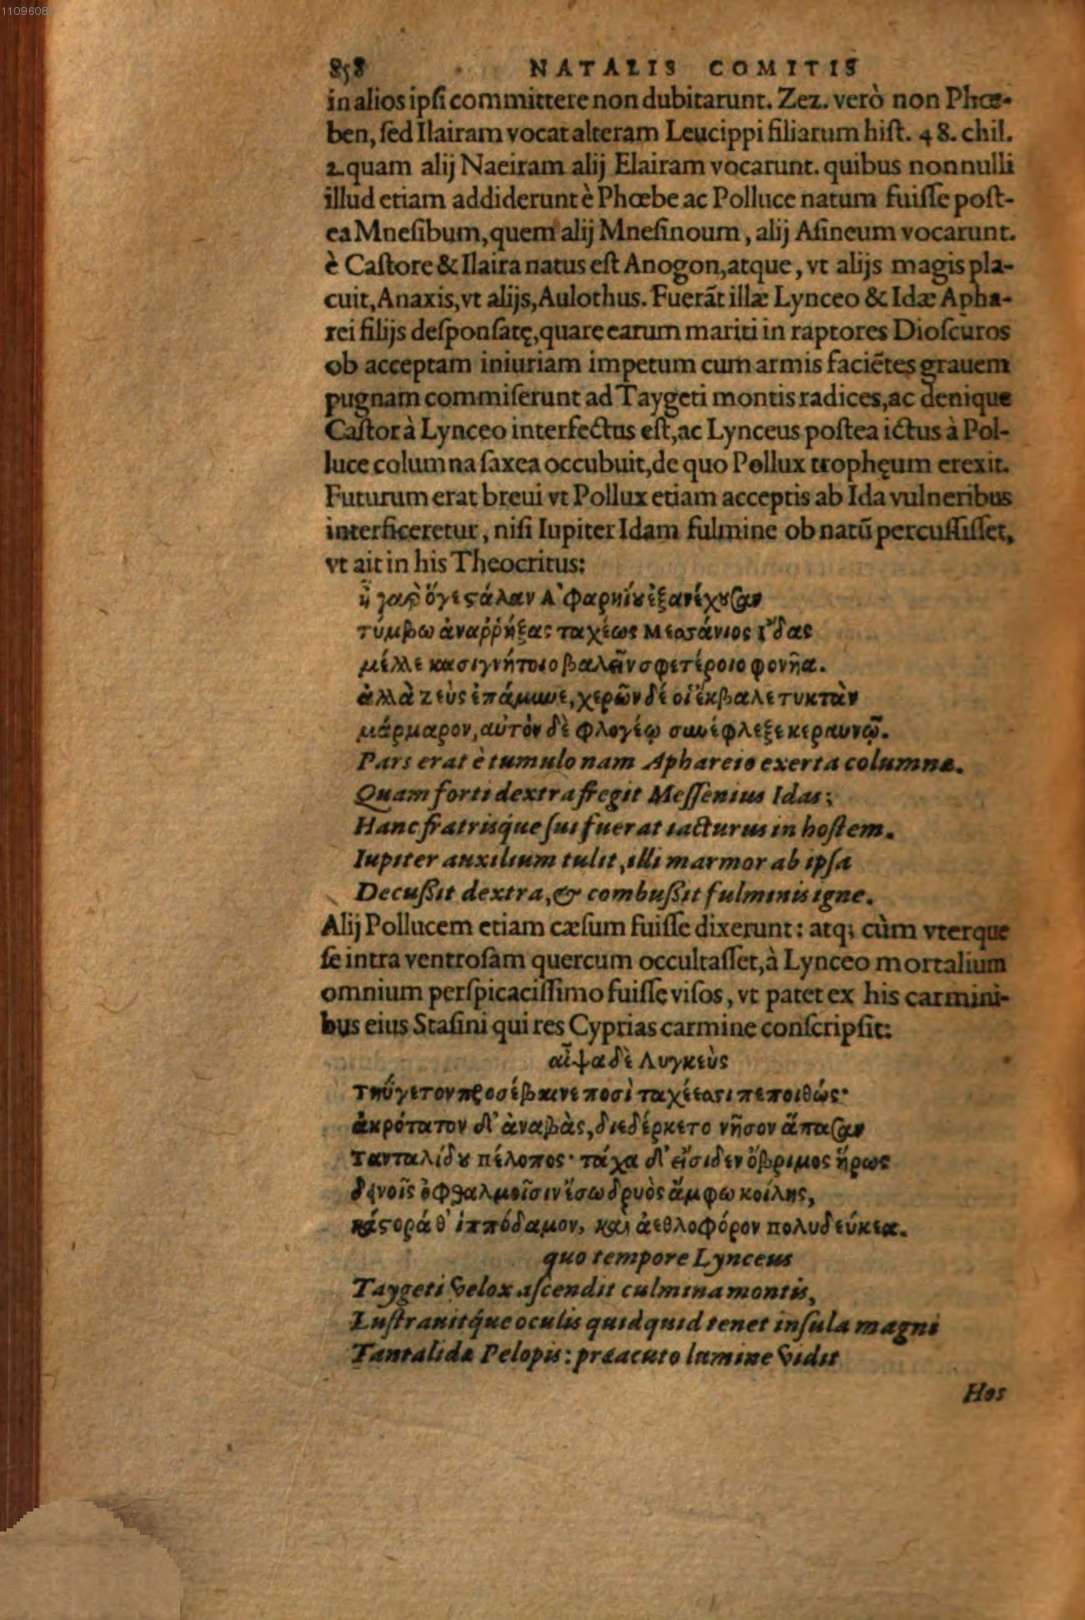 1109608
858 NATALIS COMITIS
in alios ipſi committere non dubitarunt. Zez. verò non Phœ-
ben, ſed Ilairam vocat alteram Leucippi filiarum hiſt. 48. chil.
2. quam alij Naeiram alij Elairam vocarunt. quibus nonnulli
illud etiam addiderunt è Phœbe ac Polluce natum fuiſſe poſt-
ea Mneſibum, quem alij Mneſinoum, alij Aſineum vocarunt.
è Caſtore & Ilaira natus eſt Anogon, atque, vt alijs magis pla-
cuit, Anaxis, vt alijs, Aulothus. Fuerãt illæ Lynceo & Idæ Apha-
rei filijs deſponſatę, quare earum mariti in raptores Dioſcuros
ob acceptam iniuriam impetum cum armis faciẽtes grauem
pugnam commiſerunt ad Taygeti montis radices, ac denique
Caſtor à Lynceo interfectus eſt, ac Lynceus poſtea ictus à Pol-
luce columna ſaxea occubuit, de quo Pollux trophęum erexit.
Futurum erat breui vt Pollux etiam acceptis ab Ida vulneribus
interficeretur, niſi Iupiter Idam fulmine ob natũ percuſſiſſet,
vt ait in his Theocritus:
ἦ γαρ ὅγε ϛάλαν Α᾿φαρηΐȣ ἐξανέχȣσαν
τύμβω ἀναῤῥήξας ταχέως Μεσσάνιος Ι῎δας
μέλλε κασιγνήτοιο βαλεῖν σφετέροιο φονῆα.
ἀλλὰ Ζεὺς ἐπάμυνε, χερῶν δέ οἱ ἔκβαλε τυκτὰν
μάρμαρον, αὐτὸν δὲ φλογέῳ συνέφλεξε κεραυνῷ.
Pars erat è tumulo nam Aphareio exerta columnæ.
Quam forti dextra fregit Meſſenius Idas;
Hanc fratrisq́ue ſui fuerat iacturus in hoſtem.
Iupiter auxilium tulit, illi marmor ab ipſa
Decußit dextra, & combußit fulminis igne.
Alij Pollucem etiam cæſum fuiſſe dixerunt: atq; cùm vterque
ſe intra ventroſam quercum occultaſſet, à Lynceo mortalium
omnium perſpicaciſſimo fuiſſe viſos, vt patet ex his carmini-
bus eius Staſini qui res Cyprias carmine conſcripſit:
αἶψα δὲ Λυγκεὺς
Τηΰγετον προσέβαινε ποσὶ ταχέεσσι πεποιθώς·
ἀκρότατον δ᾿ ἀναβὰς, διεδέρκετο νῆσον ἅπασαν
Τανταλίδȣ πέλοπος· τάχα δ᾿ εἴσιδεν ὄβριμος ἥρως
δεινοῖς ὀφθαλμοῖσιν ἔσω δρυὸς ἄμφω κοίλης,
κάϛορά θ᾿ ἱππόδαμον, καὶ ἀεθλοφόρον πολυδεύκεα.
quo tempore Lynceus
Taygeti velox aſcendit culmina montis,
Luſtrauitq́ue oculis quidquid tenet inſula magni
Tantalidæ Pelopis: præacuto lumine vidit
Hos